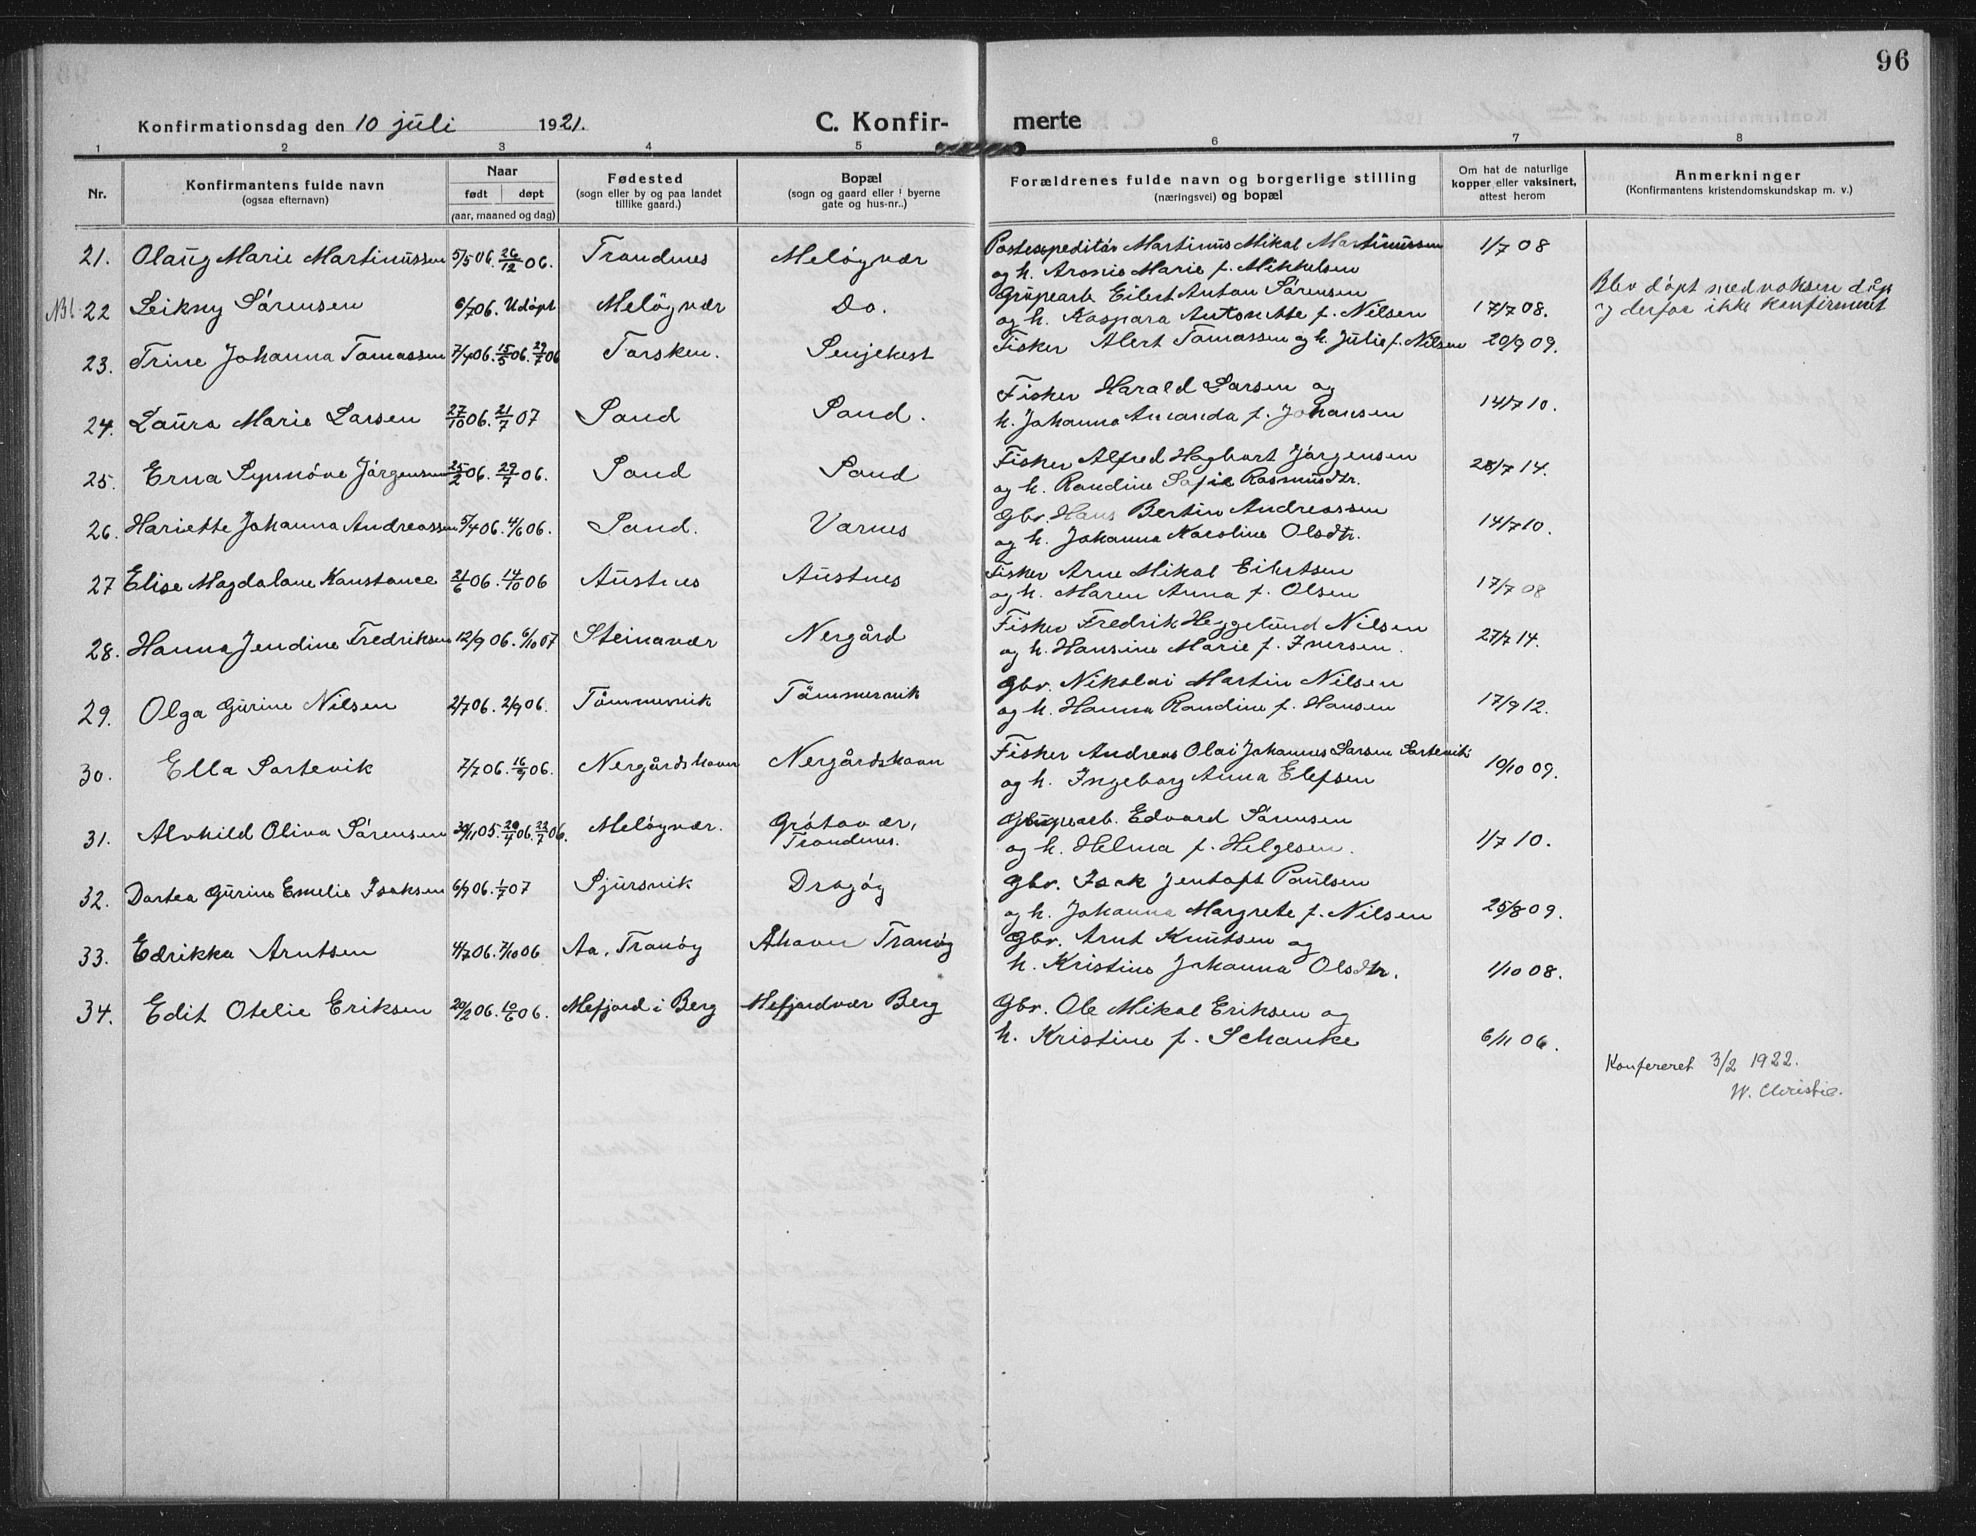 96
Konfirmationsdag den 10 juli 1921.
C. Konfir- merte
1 2 3 4 5 6 7 8
Nr.
Konfirmantens fulde navn
(ogsaa efternavn)
Naar
født døpt
(aar, maaned og dag)
Fødested
(sogn eller by og paa landet
tillike gaard.)
Bopæl
(sogn og gaard eller i byerne
gate og hus-nr..)
Forældrenes fulde navn og borgerlige stilling
(næringsvei) og bopæl
Om hat de naturlige
kopper eller vaksinert,
attest herom
Anmerkninger
(Konfirmantens kristendomskundskap m. v.)
21. Olaug Marie Martinussen 5/5 06. 26/12 06. Trondenes Meløyvær Postexpeditør Martinus Mikal Martinussen 1/7 08
og h. Aronie Marie f. Mikkelsen
NB! 22 Leikny Sørensen 6/7 06. Udøpt Meløyvær Do. Grubearb. Eilert Anton Sørensen 17/7 08. Blev døpt med voksen dåp
og h. Kaspara Antonette f. Nilsen og derfor ikke konfirmert
23. Trine Johanna Tomassen 7/4 06. 15/5 06. 29/7 06 Torsken. Senjekest Fisker Alert Tomassen og h. Julie f. Nilsen 20/9 09.
24. Laura Marie Larsen 27/10 06. 21/7 07 Sand Sand. Fisker Harald Larsen og 14/7 10.
h. Johanna Amanda f. Johansen
25. Erna Synnøve Jørgensen 25/2 06. 29/7 06. Sand Sand Fisker Alfred Hagbart Jørgensen 28/7 14.
og h. Randine Sofie Rasmusdtr.
26. Hariette Johanna Andreassen 5/4 06. 4/6 06. Sand. Varnes Gbr. Hans Bertin Andreassen 14/7 10.
og h. Johanna Karoline Olsdtr.
27 Elise Magdalane Konstance 21/6 06. 14/10 06 Austnes Austnes Fisker Arne Mikal Eilertsen 17/7 08
og h. Maren Anna f. Olsen
28. Hanna Jendine Fredriksen 12/9 06. 6/10 07 Steinavær Nergård Fisker Fredrik Heggelund Nilsen 27/7 14.
og h. Hansine Marie f. Iversen.
29. Olga Gurine Nilsen 2/7 06. 2/9 06. Tømmervik Tømmervik Gbr. Nikolai Martin Nilsen 17/9 12.
og h. Hanna Randine f. Hansen
30. Ella Sortevik 7/7 06. 16/9 06. Nergårdshavn Nergårdshavn Fisker Andreas Olai Johannes Larsen Sortevik 10/10 09.
og h. Ingeborg Anna Elefsen
31. Alvhild Oliva Sørensen 30/11 05. 20/4 06. 22/7 06. Meløyvær. Grøtavær, Grubearb. Edvard Sørensen
Trondenes. og h. Helma f. Helgesen. 1/7 10.
32. Dortea Gurine Emelie Isaksen 6/9 06. 1/7 07 Sjursvik Dragøy Gbr. Isak Jentoft Paulsen
og h. Johanna Margrete f. Nilsen 25/8 09.
33. Edrikka Arntsen 4/7 06. 7/10 06 Aa, Tranøy Åhavn Tranøy Gbr. Arnt Knutsen og
h. Kristine Johanna Olsdtr. 1/10 08.
34. Edit Otelie Eriksen 20/2 06. 10/6 06. Mefjord i Berg Mefjordvær Berg Gbr. Ole Mikal Eriksen og
h. Kristine f. Schanke 6/11 06.
Konfereret 3/2 1922.
W. Christie.